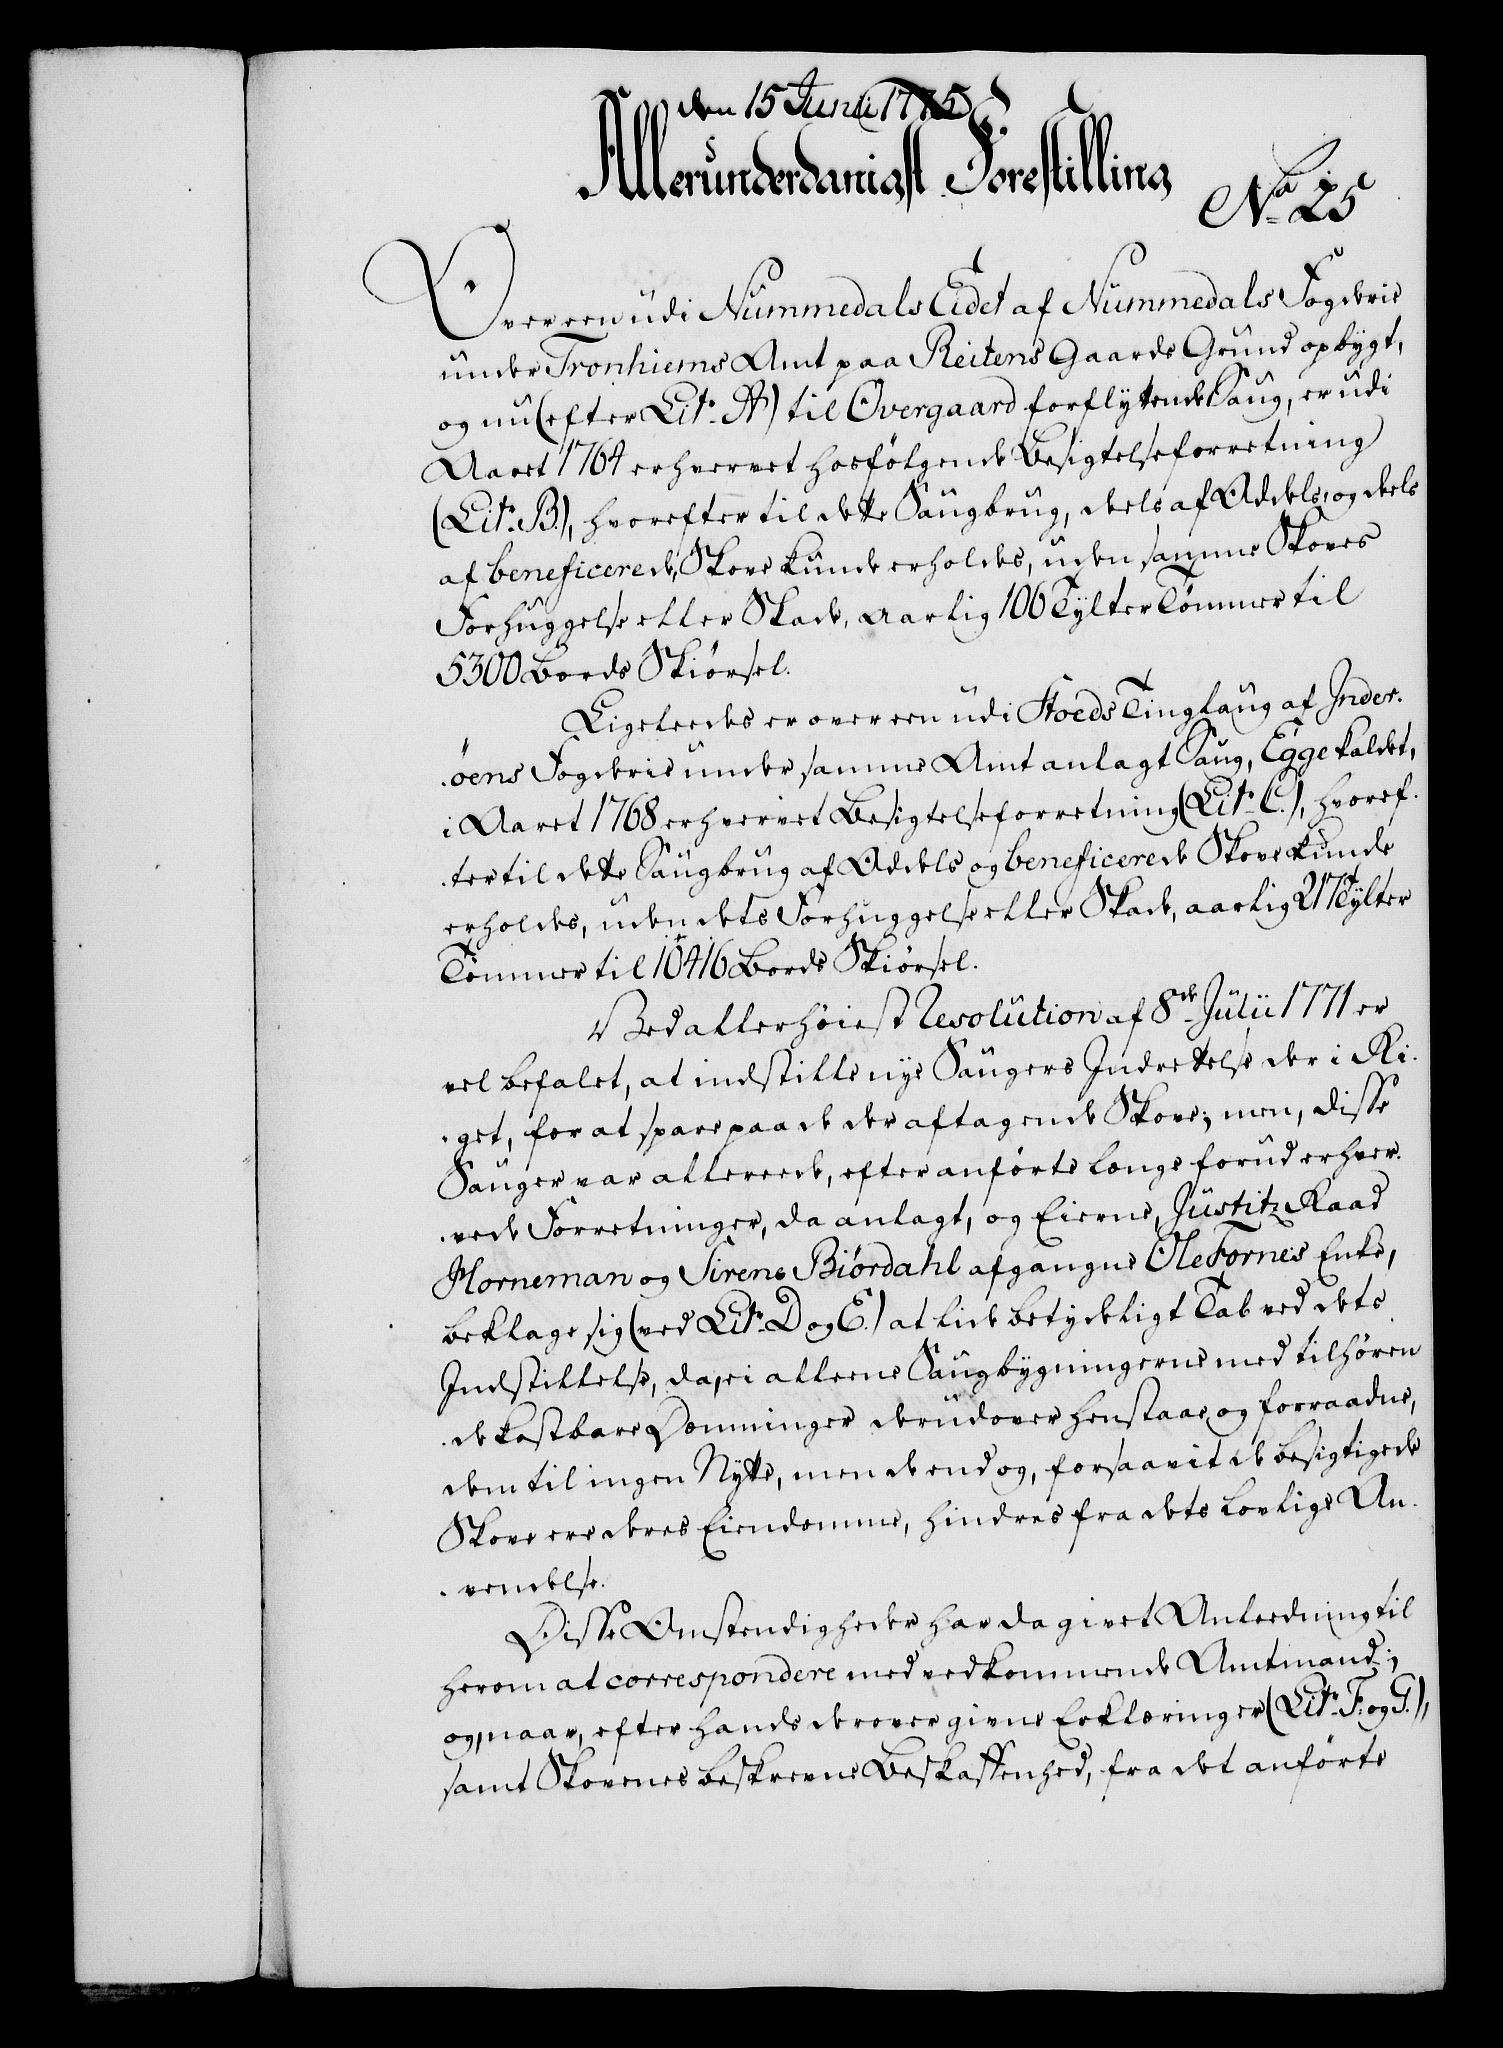 den 15 Junii 1775
Allerunderdanigst Forestilling
No 25
Over een udi Nummedals Eidet af Nummedals Fogderie
under Tronhiems Amt paa Reitens Gaards Grund opbygt,
og nu (efter Litr. A) til Overgaard forflyttende Saug, er udi
Aaret 1764 erhvervet hosfölgende Besigtelseforretning
(Litr. B.), hvorefter til dette Saugbrug, deels af Oddels, og deels
af beneficerede, Skove kunde erholdes, uden samme Skoves
Forhuggelse eller Skade, aarlig 106 Tylter Tömmer til
5300 Bords Skiörsel.
Ligeleedes er over een udi Stoeds Tinglaug af Inder-
öens Fogderie under samme Amt anlagt Saug, Egge kaldet,
i Aaret 1768 erhvervet Besigtelseforretning (Litr. C.), hvoref-
ter til dette Saugbrug af Oddels og beneficerede Skove kunde
erholdes, uden dets Forhuggelse eller Skade, aarlig 217 Tylter
Tömmer til 10416 Bords Skiörsel.
Ved allerhöiest Resolution af 8de Julii 1771 er
vel befalet, at indstille nye Saugers Indrettelse der i Ri-
get, for at spare paa de der aftagende Skove; men, disse
Sauger var allereede, efter anförte længe forud erhver-
vede Forretninger, da anlagt, og Eierne, Justitz Raad
Horneman og Sirene Biördahl afgangne Ole Fornes Enke,
beklage sig (ved Litr. D og E.) at lide betydeligt Tab ved dets
Indstillelse, da, ei alleene Saugbygningerne med tilhören
de kostbare Dæmninger derudover henstaae og forraadne,
dem til ingen Nytte, men de end og, forsaavit de besigtigede
Skove ere deres Eiendomme, hindres fra dets lovlige An-
vendelse.
Disse Omstendigheder har da givet Anleedning til
herom at correspondere med vedkommende Amtmand;
og, naar, efter hands derover givne Erklæringer (Litr. F. og G.),
samt Skovenes beskrevne Beskaffenhed, fra det anförte